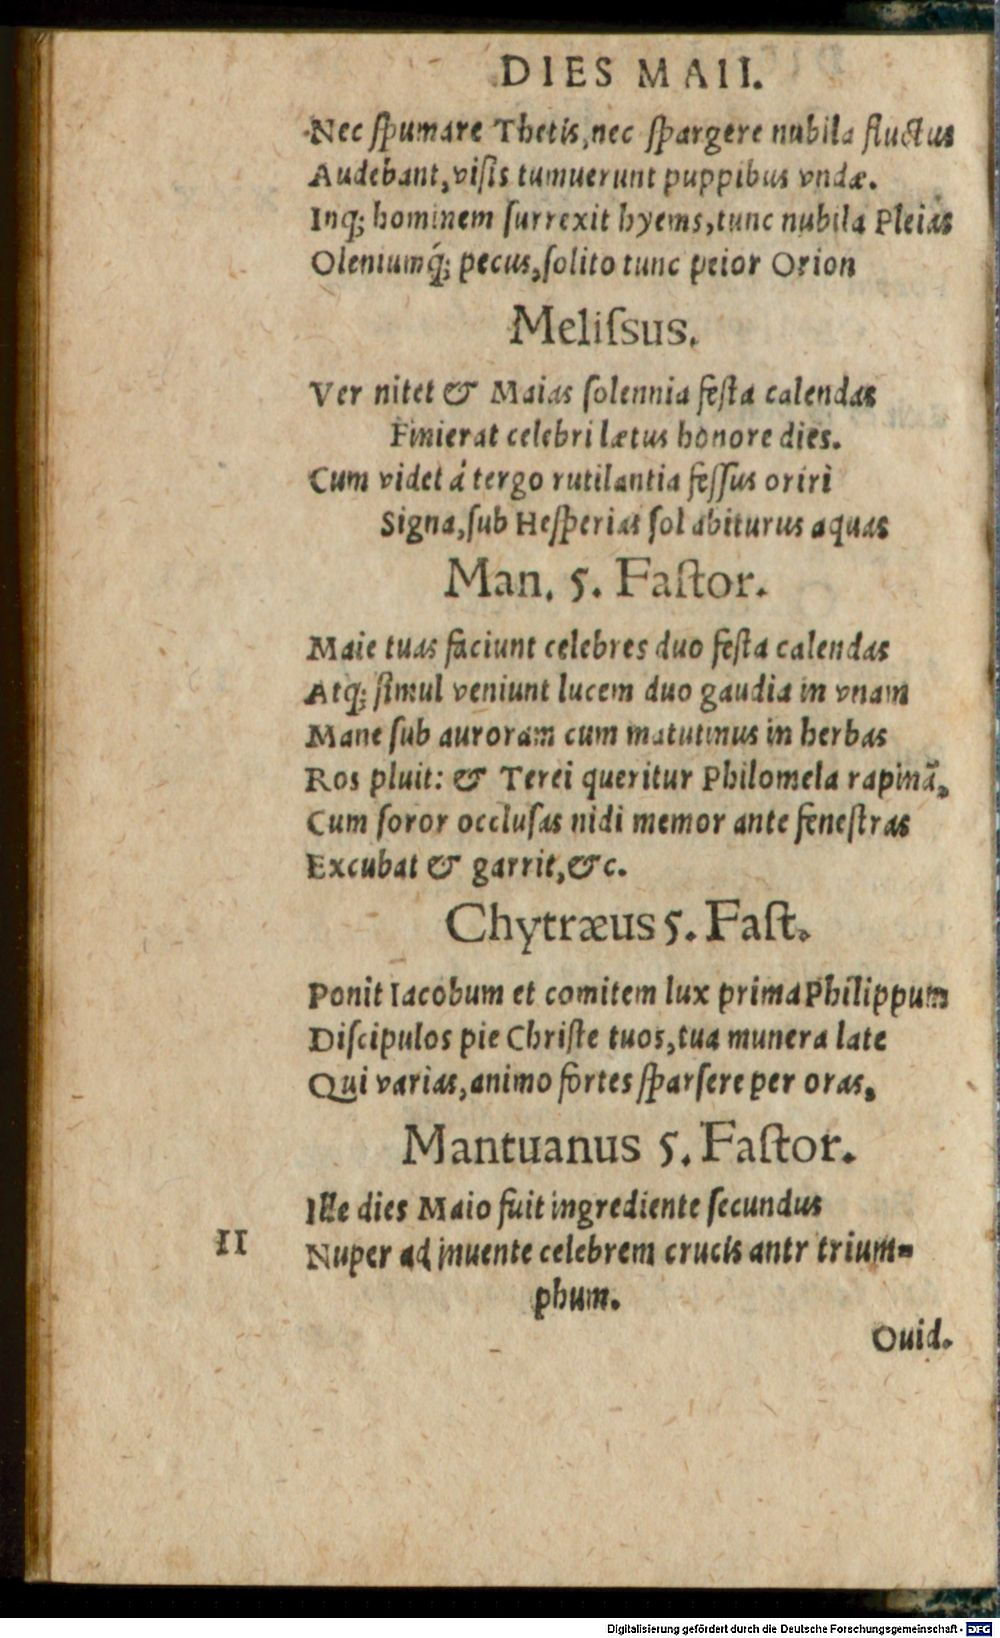 DIES MAII.
Nec ſpumare Thetis, nec ſpargere nubila fluctus
Audebant, viſis tumuerunt puppibus vndæ.
Inq; hominem ſurrexit hyems, tunc nubila Pleias
Oleniumq́; pecus, ſolito tunc peior Orion
Meliſsus.
Ver nitet & Maias ſolennia feſta calendas
Finierat celebri lætus honore dies.
Cum videt á tergo rutilantia feſſus oriri
Signa, ſub Heſperias ſol abiturus aquas
Man. 5. Faſtor.
Maie tuas faciunt celebres duo feſta calendas
Atq; ſimul veniunt lucem duo gaudia in vnam
Mane ſub auroram cum matutinus in herbas
Ros pluit: & Terei queritur Philomela rapinã,
Cum ſoror occluſas nidi memor ante feneſtras
Excubat & garrit, &c.
Chytræus 5. Faſt.
Ponit Iacobum et comitem lux prima Philippum
Diſcipulos pie Chriſte tuos, tua munera late
Qui varias, animo fortes ſparſere per oras,
Mantuanus 5. Faſtor.
Ille dies Maio fuit ingrediente ſecundus
II
Nuper ad inuente celebrem crucis antr trium-
phum.
Ouid.
Digitalisierung gefördert durch die Deutsche Forschungsgemeinschaft - DFG